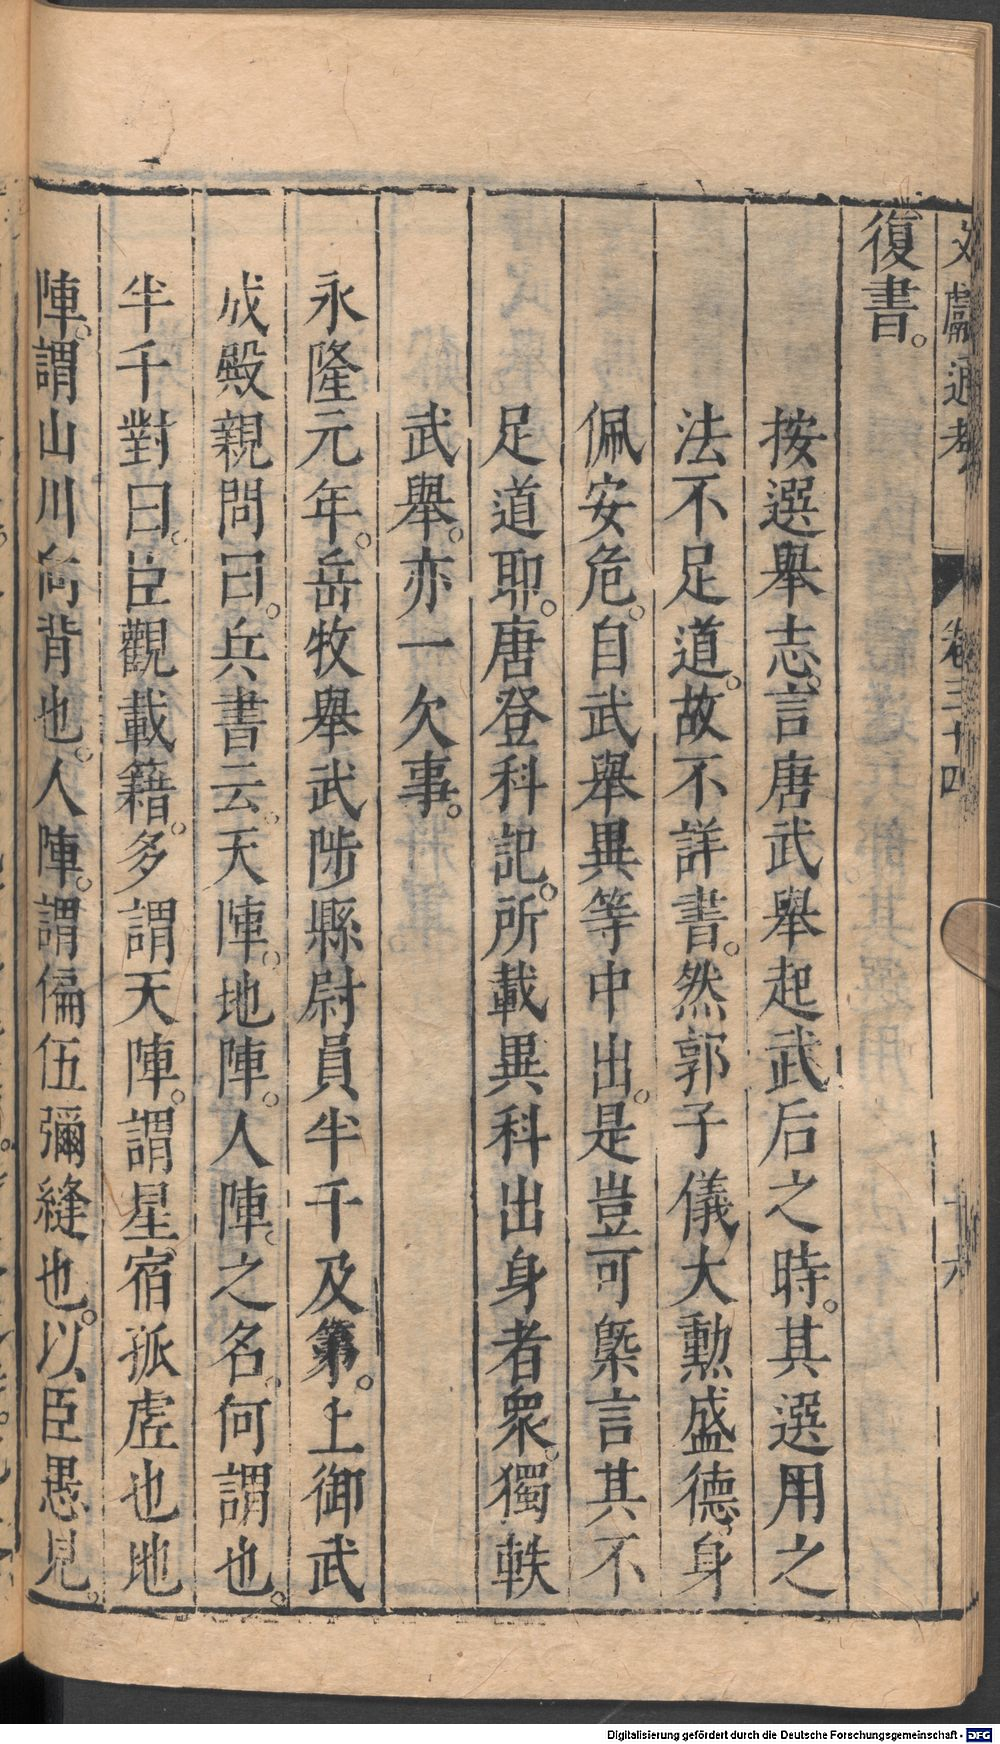 文獻通考 卷三十四 十六
復書。
按選舉志。言唐武舉起武后之時。其選用之
法不足道。故不詳書。然郭子儀大勳盛德。身
佩安危。自武舉異等中出。是豈可槩言其不
足道耶。唐登科記。所載異科出身者衆。獨軼
武舉。亦一欠事。
永隆元年。岳牧舉武陟縣尉員半千及第。上御武
成殿親問曰。兵書云。天陣。地陣。人陣。之名。何謂也。
半千對曰。臣觀載籍。多謂天陣。謂星宿孤虛也地
陣。謂山川向背也。人陣。謂偏伍彌縫也。以臣愚見。
Digitalisierung gefördert durch die Deutsche Forschungsgemeinschaft - DFG